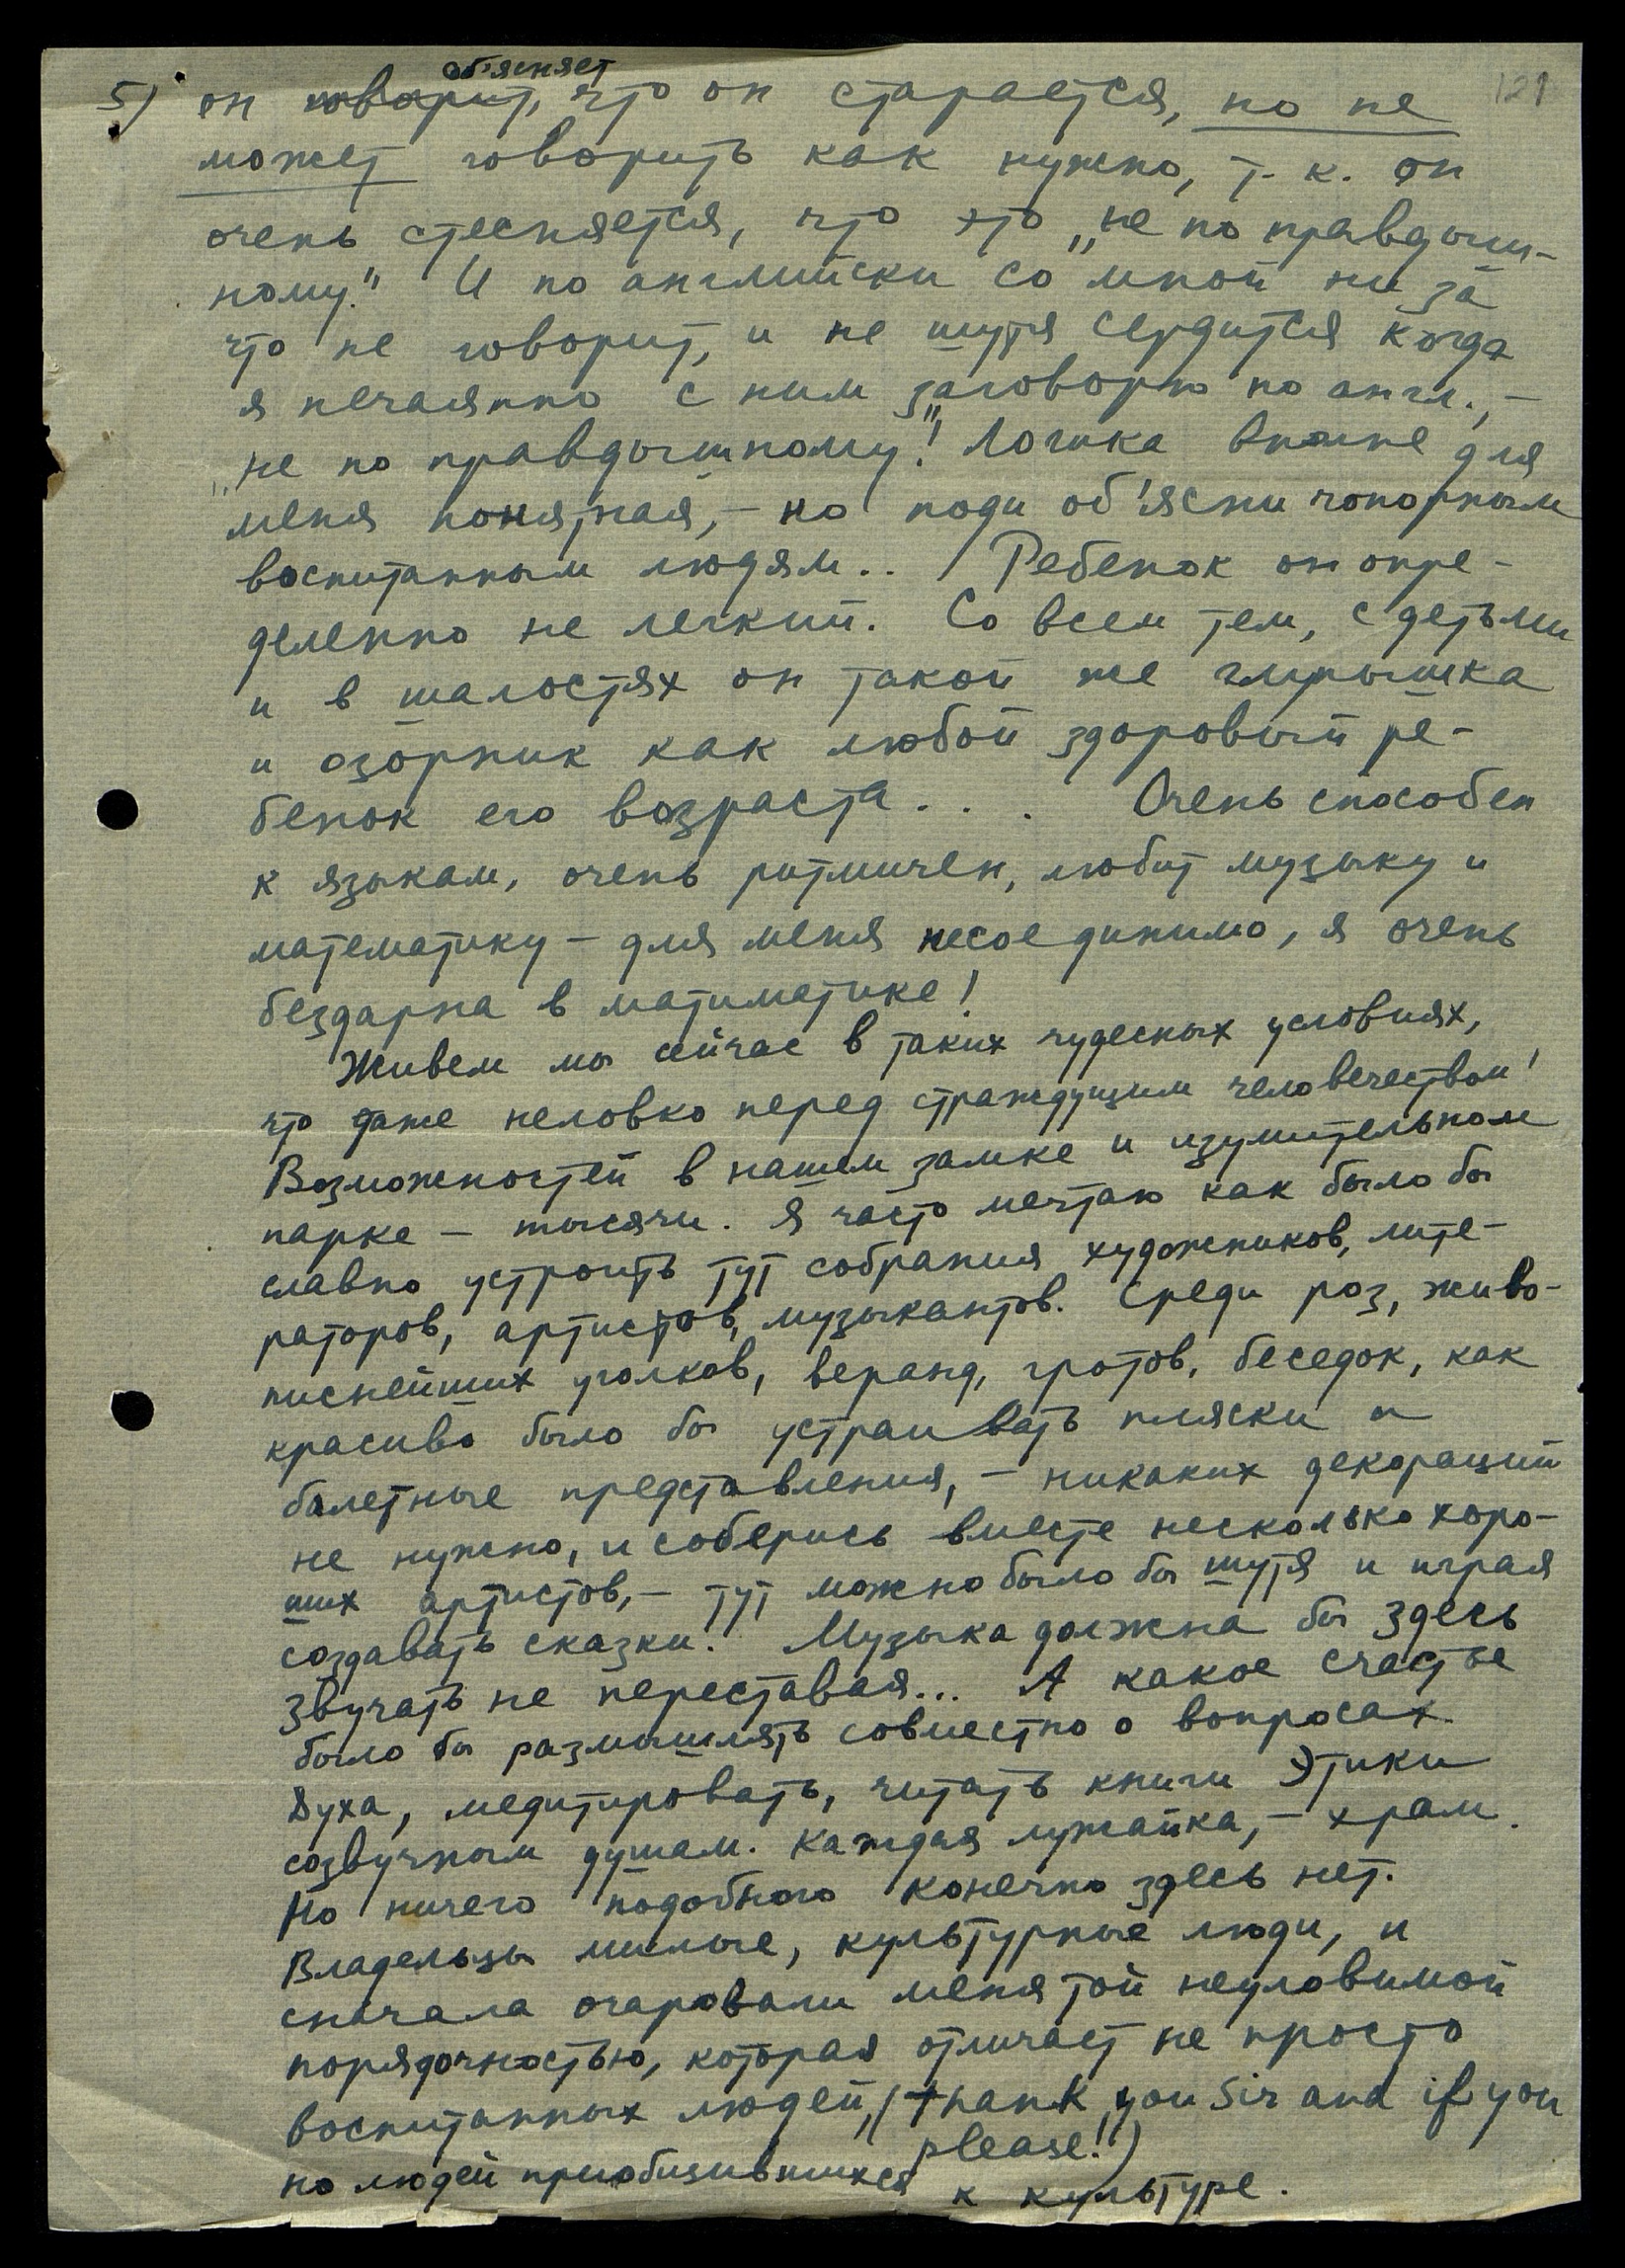 121
объясняет
5) он говорит, что он старается, но не
может говорить как нужно, т. к. он
очень стесняется, что это „не по правдыш-
ному." И по английски со мной ни за
что не говорит, и не шутя сердится когда
я нечаянно с ним заговорю по англ., –
„не по правдышному"! Логика вполне для
меня понятная, – но поди об'ясни чопорным
воспитанным людям.. Ребенок он опре-
деленно не легкий. Со всем тем, с детьми
и в шалостях он такой же глупышка
и озорник как любой здоровый ре-
бенок его возраста . . . Очень способен
к языкам, очень ритмичен, любит музыку и
математику – для меня несоединимо, я очень
бездарна в матиматике!
Живем мы сейчас в таких чудесных условиях,
что даже неловко перед страждущим человечеством!
Возможностей в нашем замке и изумительном
парке – тысячи. Я часто мечтаю как было бы
славно устроить тут собрания художников, лите-
раторов, артистов, музыкантов. Среди роз, живо-
писнейших уголков, веранд, гротов, беседок, как
красиво было бы устраивать пляски и
балетные представления, – никаких декораций
не нужно, и соберись вместе несколько хоро-
ших артистов, – тут можно было бы шутя и играя
создавать сказки! Музыка должна бы здесь
звучать не переставая... А какое счастье
было бы размышлять совместно о вопросах
Духа, медитировать, читать книги Этики
созвучным душам. Каждая лужайка, – храм.
Но ничего подобного конечно здесь нет.
Владельцы милые, культурные люди, и
сначала очаровали меня той неуловимой
порядочностью, которая отличает не просто
воспитанных людей, („thank you Sir and if you
please!")
но людей приобщившихся к культуре.